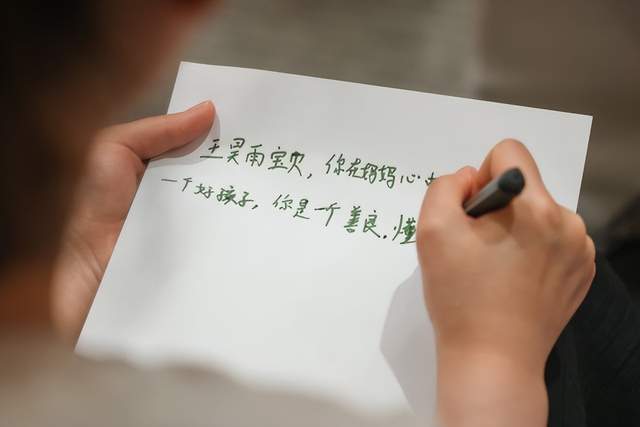 王昊雨宝贝，你在妈妈心
一个好孩子，你是一个善良.懂